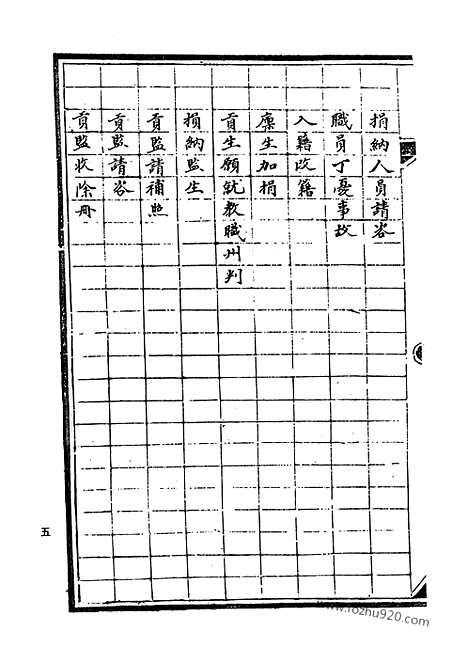 捐納人員請咨
職員丁憂事故
入籍改籍
廩生加捐
貢生願就教職州判
捐納監生
貢監請補照
貢監請咨
貢監收除冊
五
www.fozhu920.com